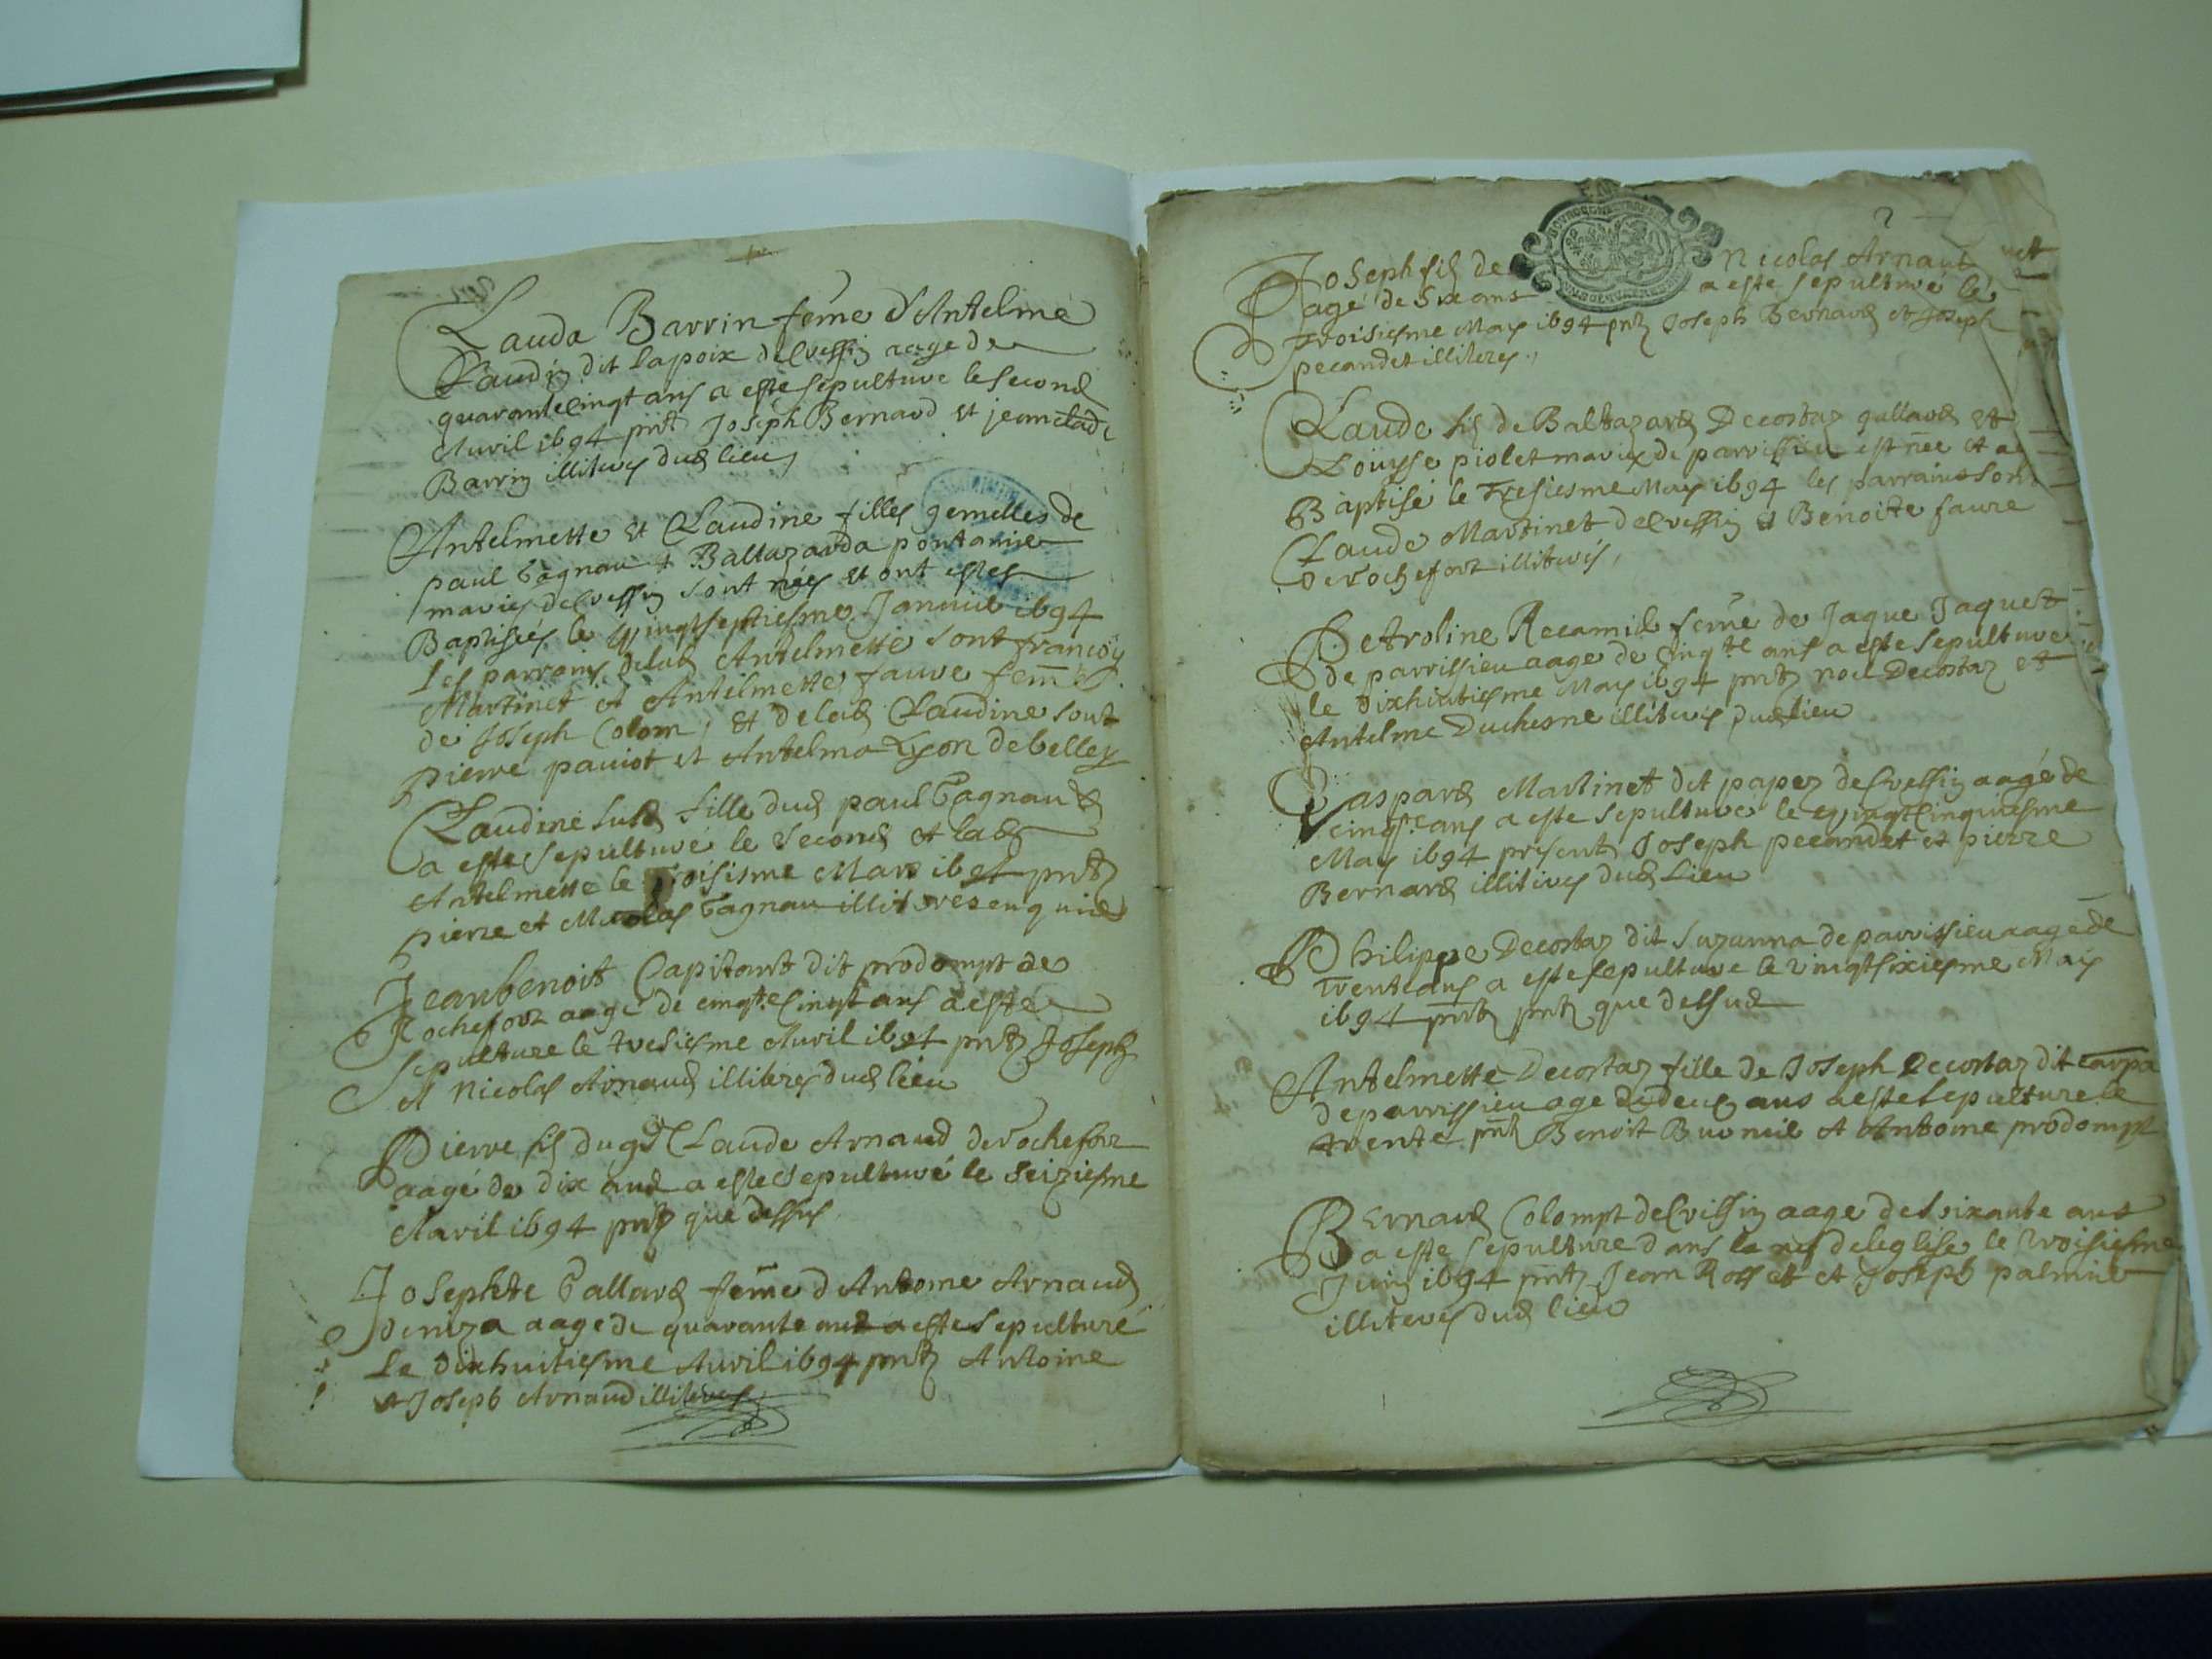 Clauda Barrin feme d'Antelme
Claudin dit lapoix de Cressin aage de
quarantecinqt ans a esté sepulture le second
Auril 1694 pnts Joseph Bernard et jean clade
Barrin illiteres dud lieu
Antelmette et Claudine filles gemelles de
paul Tagnau et Baltazarda pontanier
maries de Cressin sont nées et ont estes
Baptisées le vingtseptiesme Januie 1694
les parrains delad Antelmette sont francoy
Martinet et Antelmette faure femme
de Joseph Colom, et delad Claudine sont
pierre pauiot et Antelma Lyon de belley
Claudine susd fille dud paul Tagnau
a este sepulturé le second et lad
Antelmette le troisisme Mars 1694 pnts
pierre et Nicolas Tagnau illiteres enquis
Jeanbenoit Capitant dit prodompt de
Rochefort aagé de cinqte cinqt ans a esté
sepulture le tresiesme Auril 1694 pnts Joseph
et Nicolas Arnaud illiteres dud lieu
Pierre fils dugd Claude Arnaud de rochefort
aagé de dix ans a este sepulturé le seiziesme
Auril 1694 pnts que dessus
Josephte Tallard feme d'Antoine Arnaud
aage de quarante ans a este sepulturé
le dixhuitiesme Auril 1694 pnts Antoine
et Joseph Arnaud illiteres
Joseph fils de Nicolas Arnaud
agé de six ans a este sepulture le
troisiesme May 1694 pnts Joseph Bernard et Joseph
pecandet illiteres
Claude fils de Baltazard Decostaz gallard et
Louyse piolet maries de parrissieu est née et a
Baptisé le tresiesme May 1694 les parrains sont
Claude Martinet de Cressin et Benoite faure
de rochefort illiteres
Petroline Recamier feme de Jaque Jaquet
de parrissieu aage de cinqte ans a este sepulture
le dixhuitiesme May 1694 pnts noel Decostaz et
Antelme Duchesne illiteres dud lieu
Gaspard Martinet dit papez de Cressin aagé de
cinqte ans a este sepulture le vingtcinquiesme
May 1694 presents Joseph pecandet et pierre
Bernard illiteres dud Lieu
Philippe Decostaz dit Suzanna de parrissieu aagé de
trente ans a este sepulture le vingtsixiesme May
1694 pnts pnts que dessus
Antelmette Decostaz fille de Joseph Decostaz dit carpa
de parrissieu age de deux ans a este sepulture le
trente pnts Benoit et Antoine prodompt
Bernard Colompt de Cressin aage de soixante ans
a este sepulture dans la nef de leglise le troisiesme
Juin 1694 pnts Jean Rosset et Joseph palmier
illiteres dud lieu